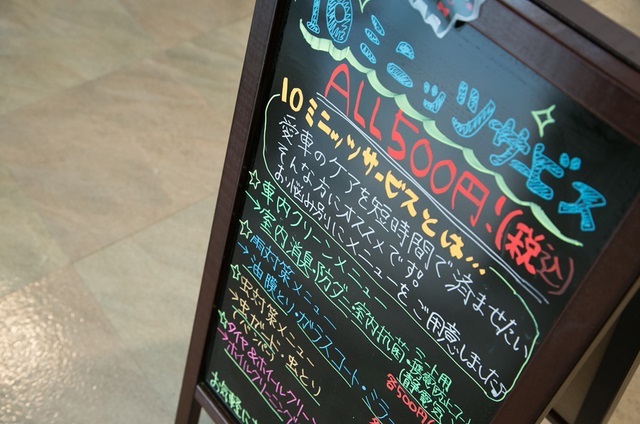 10ミニッツサービス
ALL500円!(税込)
10ミニッツサービスとは…
愛車のケアを短時間で済ませたい
そんな方にオススメです。
お悩み別にメニューをご用意しました♪
☆車内クリーンメニュー
→室内消臭・防ダニ・室内抗菌・
☆雨対策メニュー
→油膜とり・ガラスコート・ミラー
☆虫対策メニュー
虫とり
☆タイヤ&ホイールクリーン
→ホイルクリーニング
各500円
お気軽に